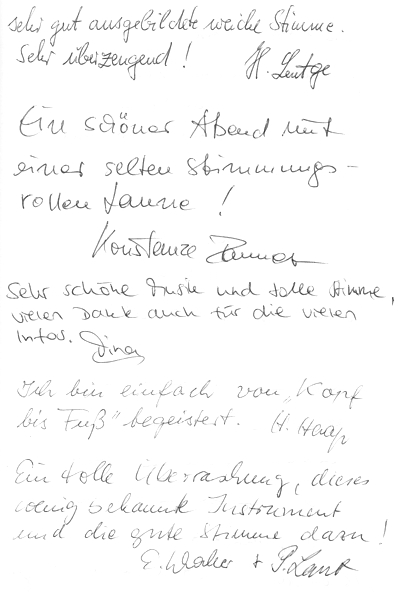 sehr gut ausgebildete weiche Stimme.
Sehr überzeugend! H. Lentge
Ein schöner Abend mit
einer selten stimmungs-
vollen Laune!
Konstanze
Sehr schöne Musik und tolle Stimme,
vielen Dank auch für die vielen
Infos. Dina
Ich bin einfach von „Kopf
bis Fuß" begeistert. H. Haap
Ein tolle Überraschung, dieses
wenig bekannte Instrument
und die gute Stimme dazu!
E. Walter + P. Lang